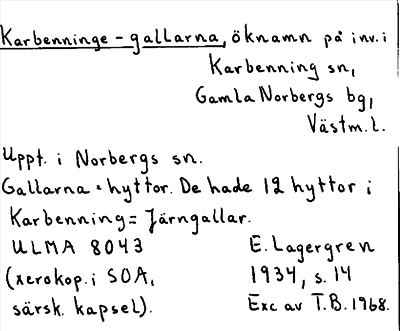 Karbenninge - gallarna, öknamn på inv. i
Karbenning sn,
Gamla Norbergs bg,
Västm. l.
Uppt. i Norbergs sn.
Gallarna = hyttor. De hade 12 hyttor i
Karbenning = Järngallar.
ULMA 8043
(xerokop. i SOA,
särsk. kapsel).
E. Lagergren
1934, s. 14
Exc av T.B. 1968.